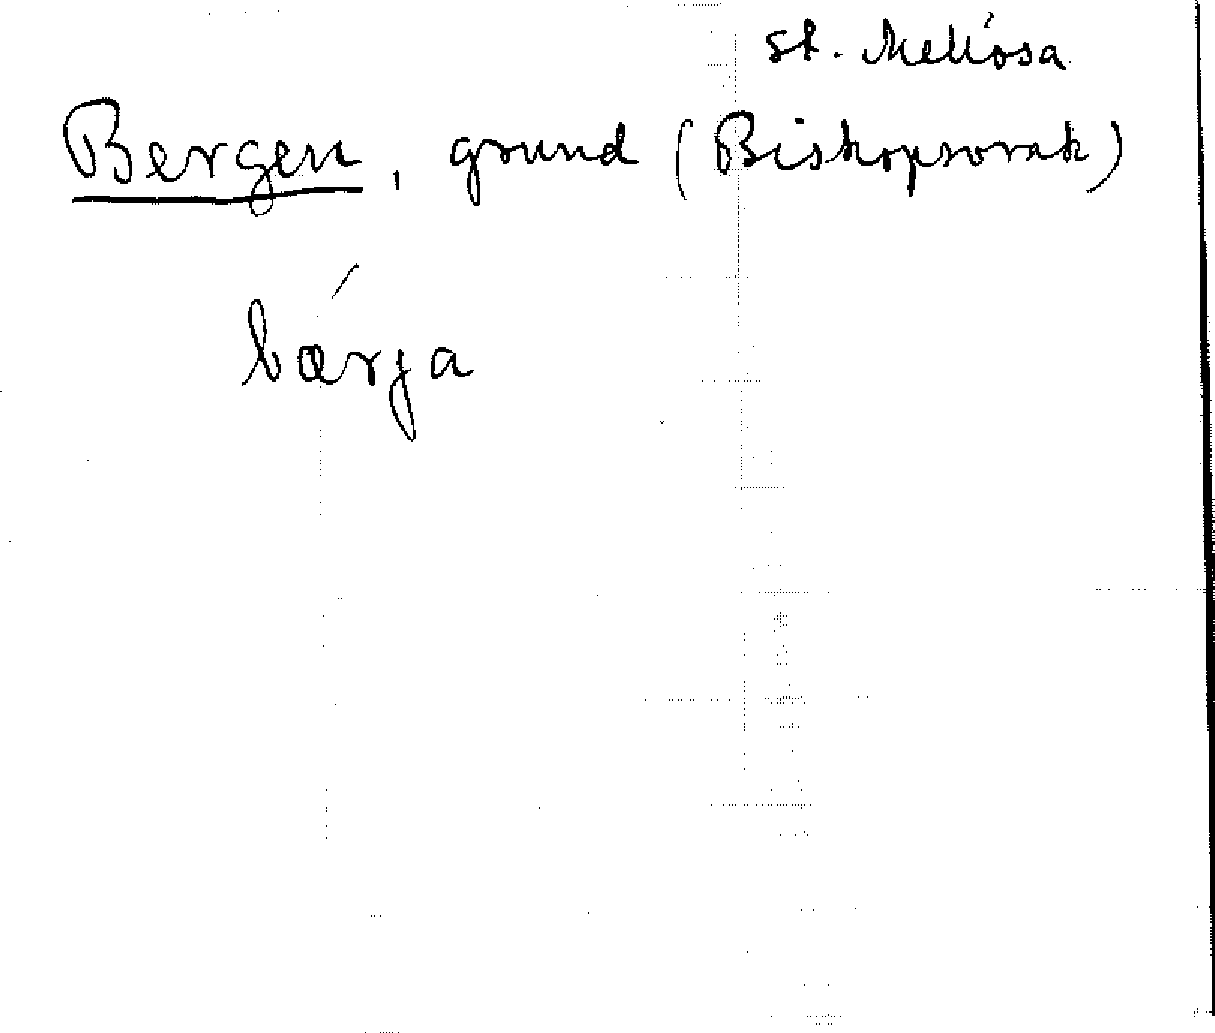 St. Mellösa
Bergen, grund (Biskopsvrak)
bærja